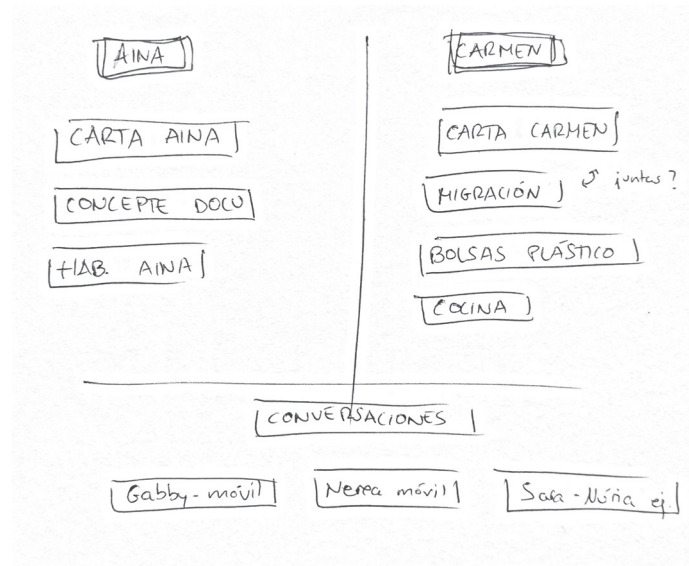 AINA
CARTA AINA
CONCEPTE DOCU
HAB. AINA
CARMEN
CARTA CARMEN
MIGRACIÓN
juntas?
BOLSAS PLÁSTICO
COCINA
CONVERSACIONES
Gabby-móvil
Nerea móvil
Sara-Núria ej.